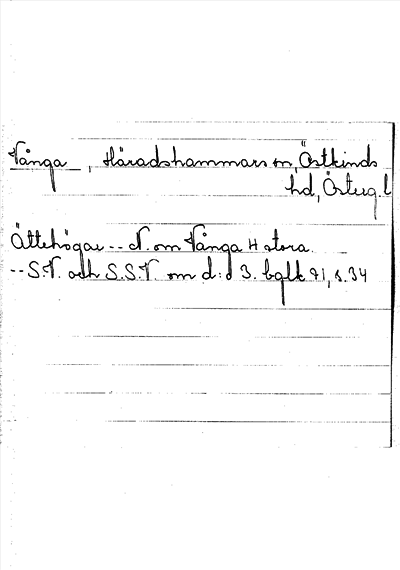 Vånga, Häradshammars sn, Östkinds
hd, Österg.l
Ättehögar -- N. om Vånga H stora
-- S.V. och S.S.V. om d:o 3. bglk 71, s. 34